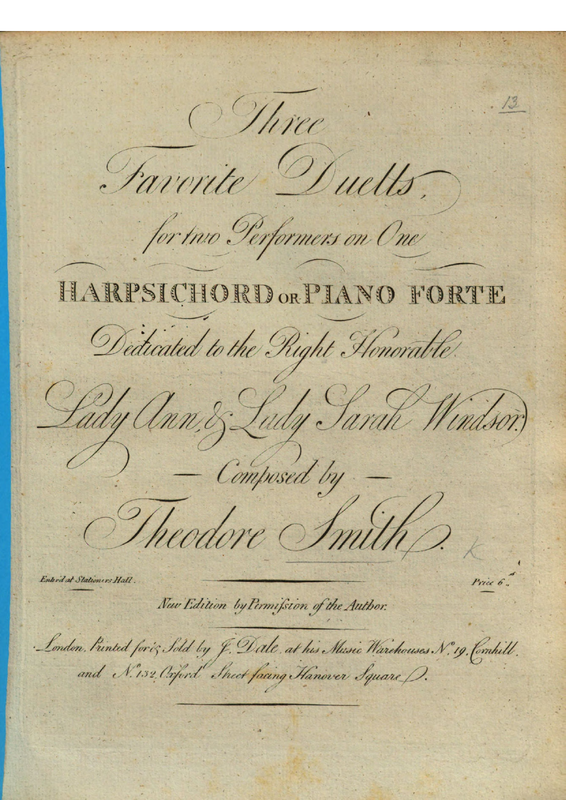 13
Three
Favorite Duetts,
for two Performers on One
HARPSICHORD OR PIANO FORTE
Dedicated to the Right Honorable
Lady Ann, & Lady Sarah Windsor.
— Composed by —
Theodore Smith.
K
Enter'd at Stationers Hall.
Price 6.d
New Edition by Permission of the Author.
London, Printed for & Sold by J. Dale, at his Music Warehouses No. 19, Cornhill.
and No. 132, Oxford Street facing Hanover Square.